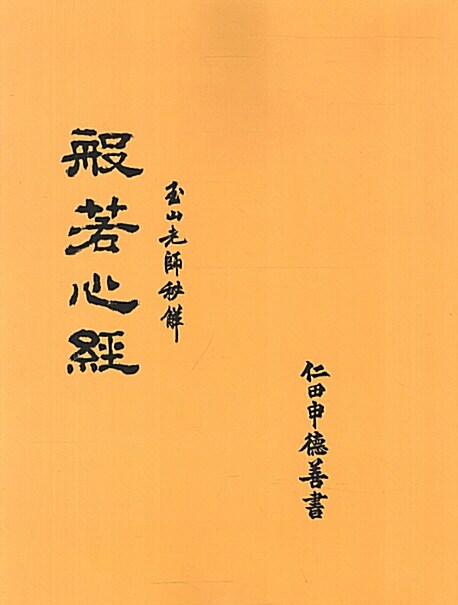 仁田申德善書
玉山老師秘解
般若心經